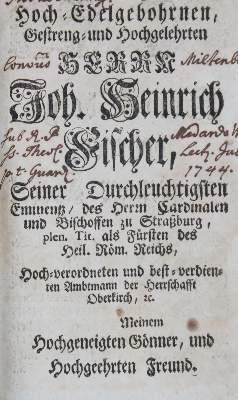 Hoch-Edelgebohrnen,
Gestreng-und Hochgelehrten
HERRN
Joh. Heinrich
Fischer,
1744.
Seiner Durchleuchtigsten
Eminentz, des Herrn Cardinalen
und Bischoffen zu Straßburg,
plen. Tit. als Fürsten des
Heil. Röm. Reichs,
Hoch-verordneten und best-verdien-
ten Ambtmann der Herrschafft
Oberkirch, ꝛc.
Meinem
Hochgeneigten Gönner, und
Hochgeehrten Freund.